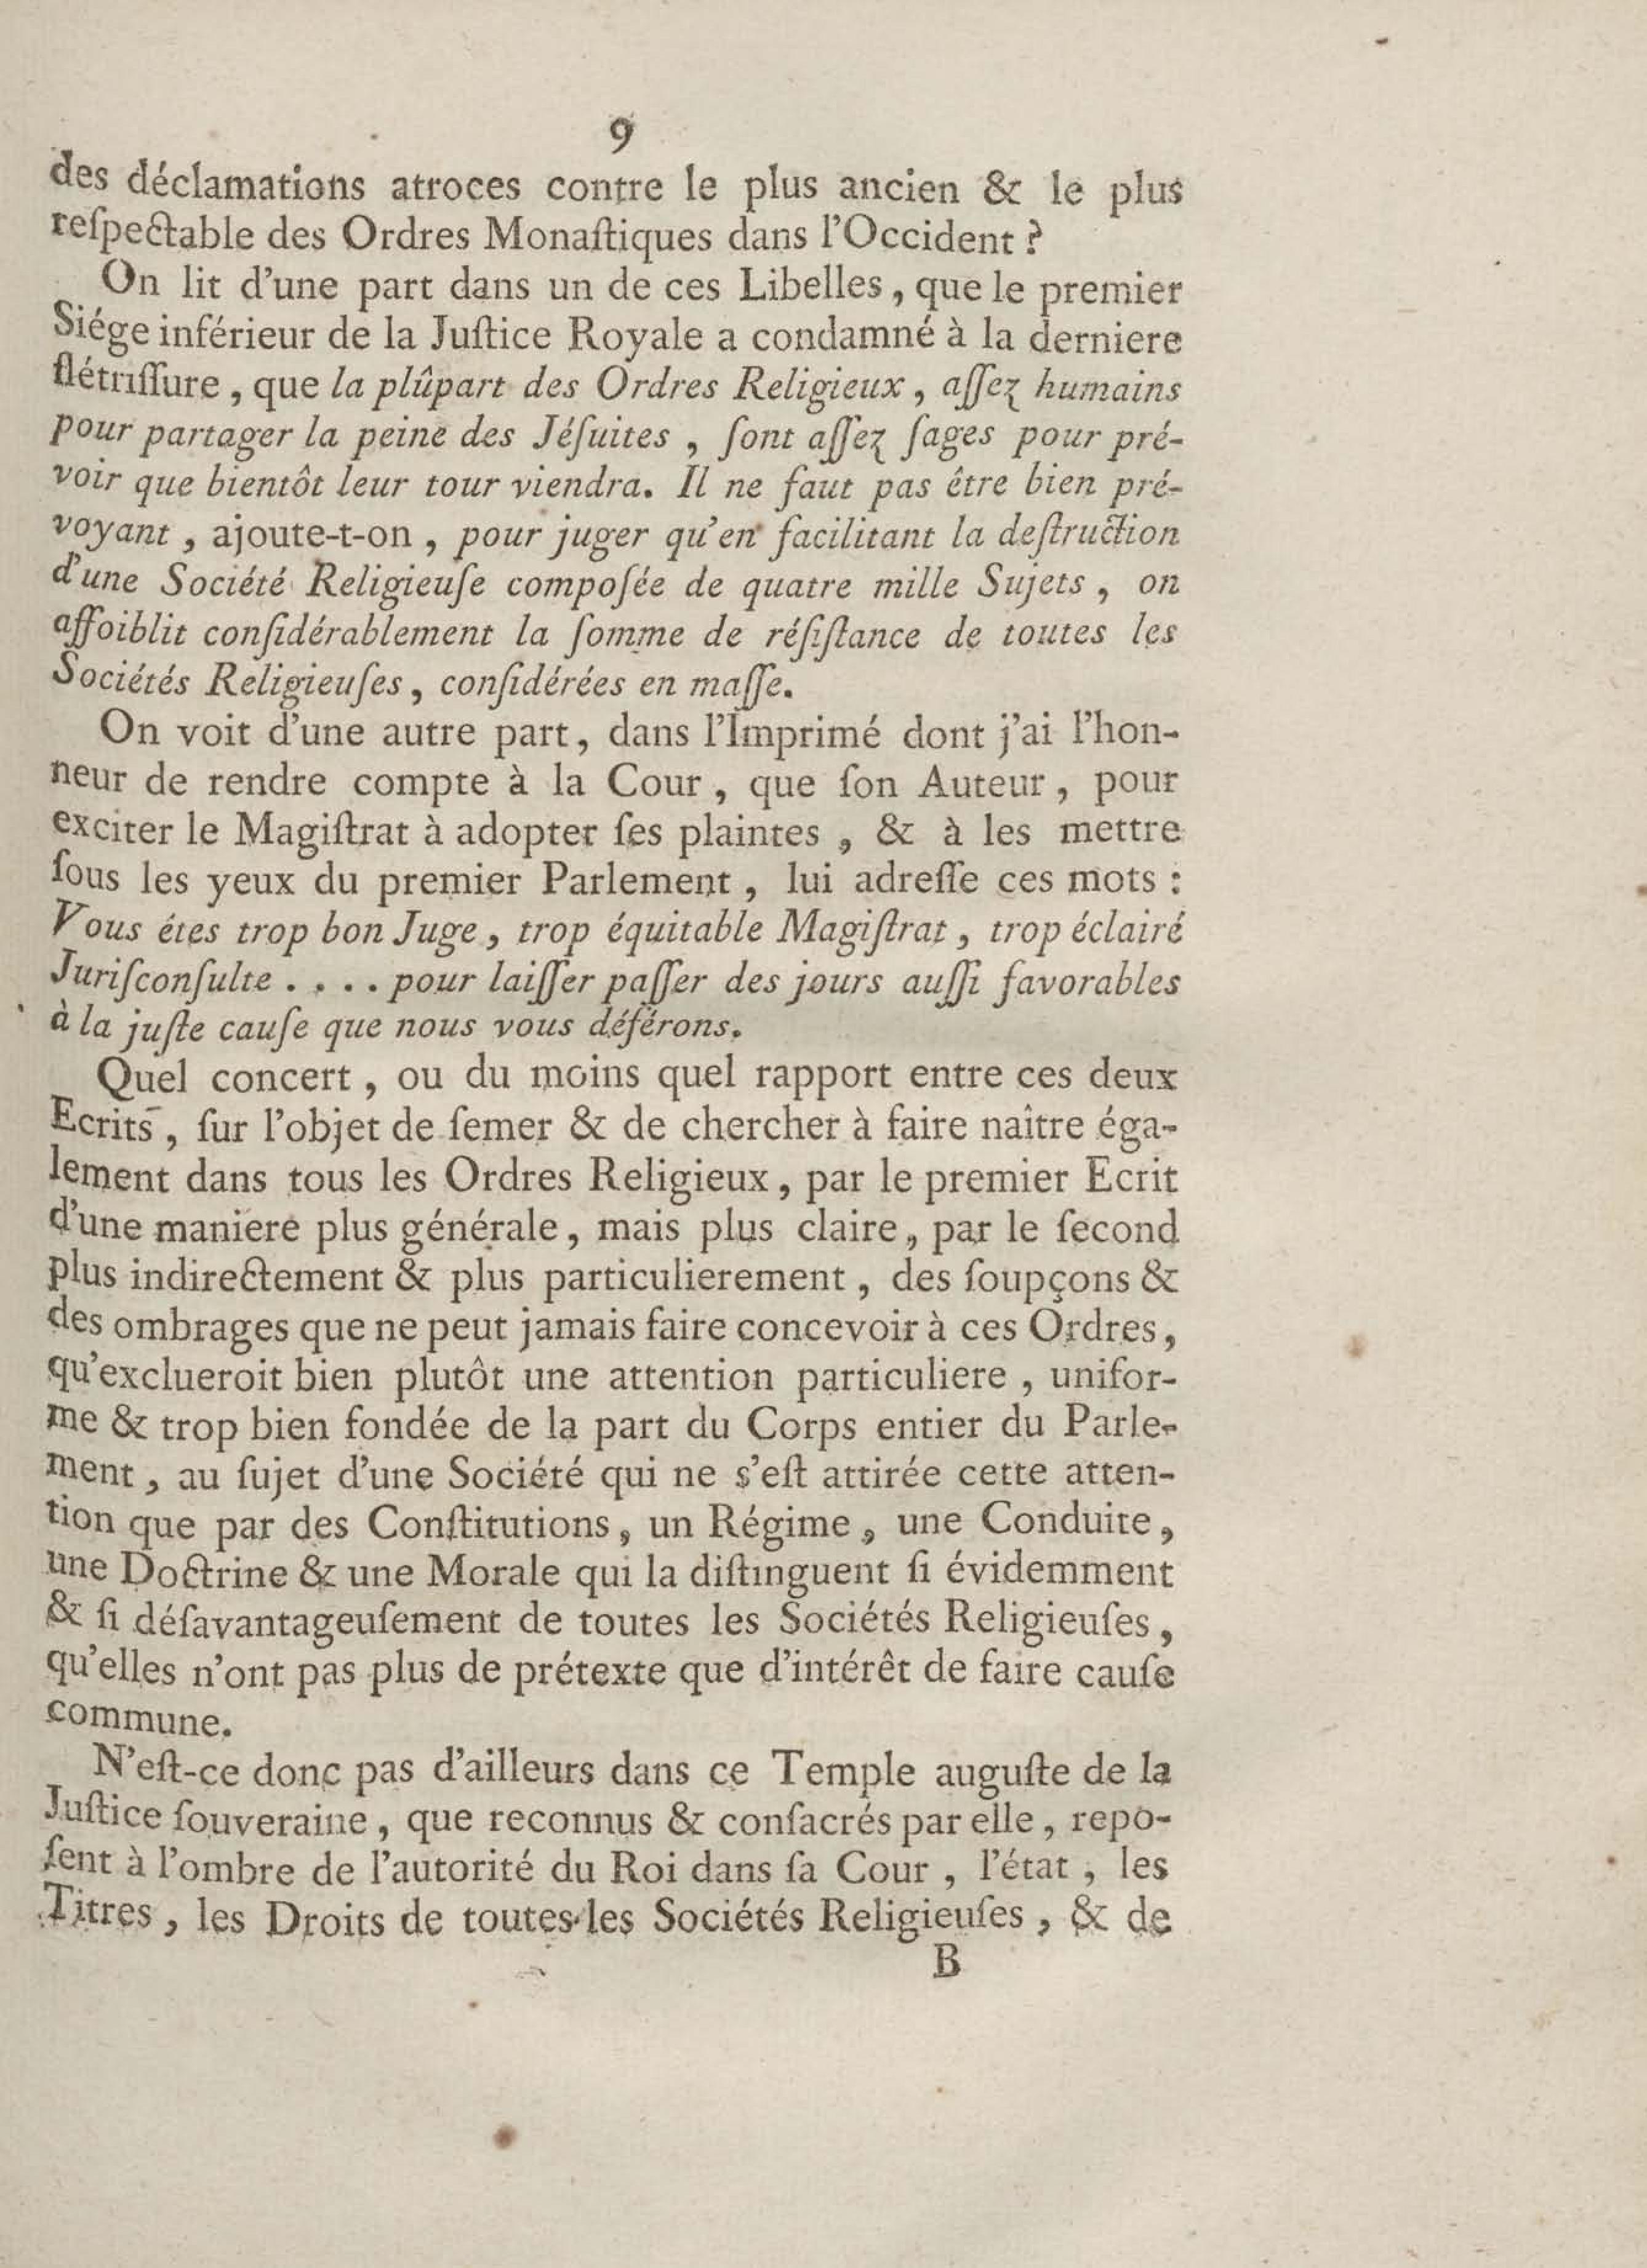 9
des déclamations atroces contre le plus ancien & le plus
reſpectable des Ordres Monaſtiques dans l'Occident ?
On lit d'une part dans un de ces Libelles, que le premier
Siége inférieur de la Juſtice Royale a condamné à la derniere
flétriſſure, que la plûpart des Ordres Religieux, aſſez humains
pour partager la peine des Jéſuites, ſont aſſez ſages pour pré-
voir que bientôt leur tour viendra. Il ne faut pas être bien pré-
voyant, ajoute-t-on, pour juger qu'en facilitant la deſtruction
d'une Société Religieuſe compoſée de quatre mille Sujets, on
affoiblit conſidérablement la ſomme de réſiſtance de toutes les
Sociétés Religieuſes, conſidérées en maſſe.
On voit d'une autre part, dans l'Imprimé dont j'ai l'hon-
neur de rendre compte à la Cour, que ſon Auteur, pour
exciter le Magiſtrat à adopter ſes plaintes, & à les mettre
ſous les yeux du premier Parlement, lui adreſſe ces mots :
Vous étes trop bon Juge, trop équitable Magiſtrat, trop éclairé
Juriſconſulte . . . . pour laiſſer paſſer des jours auſſi favorables
à la juſte cauſe que nous vous déférons.
Quel concert, ou du moins quel rapport entre ces deux
Ecrits, ſur l'objet de ſemer & de chercher à faire naître éga-
lement dans tous les Ordres Religieux, par le premier Ecrit
d'une maniere plus générale, mais plus claire, par le ſecond
plus indirectement & plus particulierement, des ſoupçons &
des ombrages que ne peut jamais faire concevoir à ces Ordres,
qu'exclueroit bien plutôt une attention particuliere, unifor-
me & trop bien fondée de la part du Corps entier du Parle-
ment, au ſujet d'une Société qui ne s'eſt attirée cette atten-
tion que par des Conſtitutions, un Régime, une Conduite,
une Doctrine & une Morale qui la diſtinguent ſi évidemment
& ſi déſavantageuſement de toutes les Sociétés Religieuſes,
qu'elles n'ont pas plus de prétexte que d'intérêt de faire cauſe
commune.
N'eſt-ce donc pas d'ailleurs dans ce Temple auguſte de la
Juſtice ſouveraine, que reconnus & conſacrés par elle, repo-
ſent à l'ombre de l'autorité du Roi dans ſa Cour, l'état, les
Titres, les Droits de toutes les Sociétés Religieuſes, & de
B